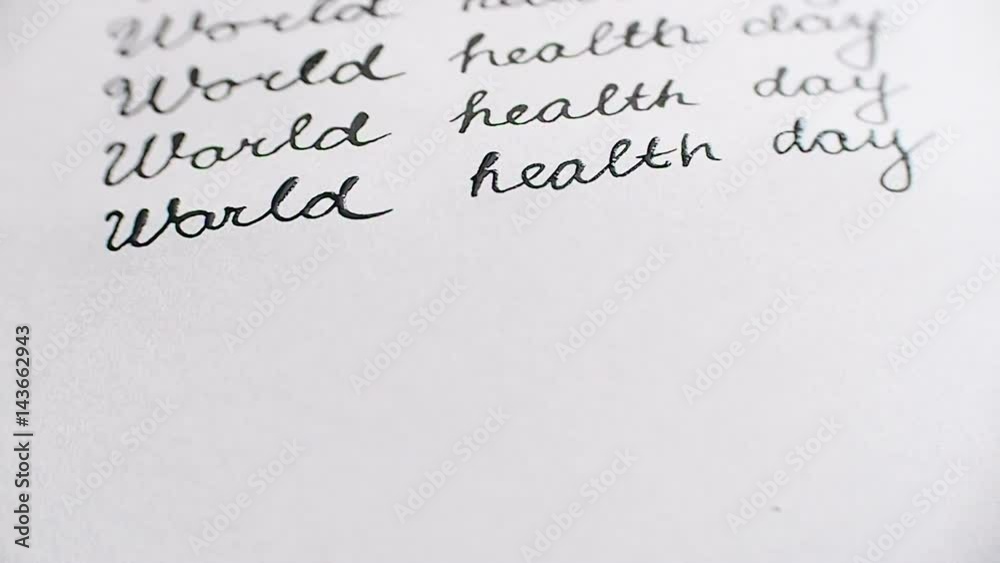 World health day
World health day
World health day
World health day
Adobe Stock | #143662943